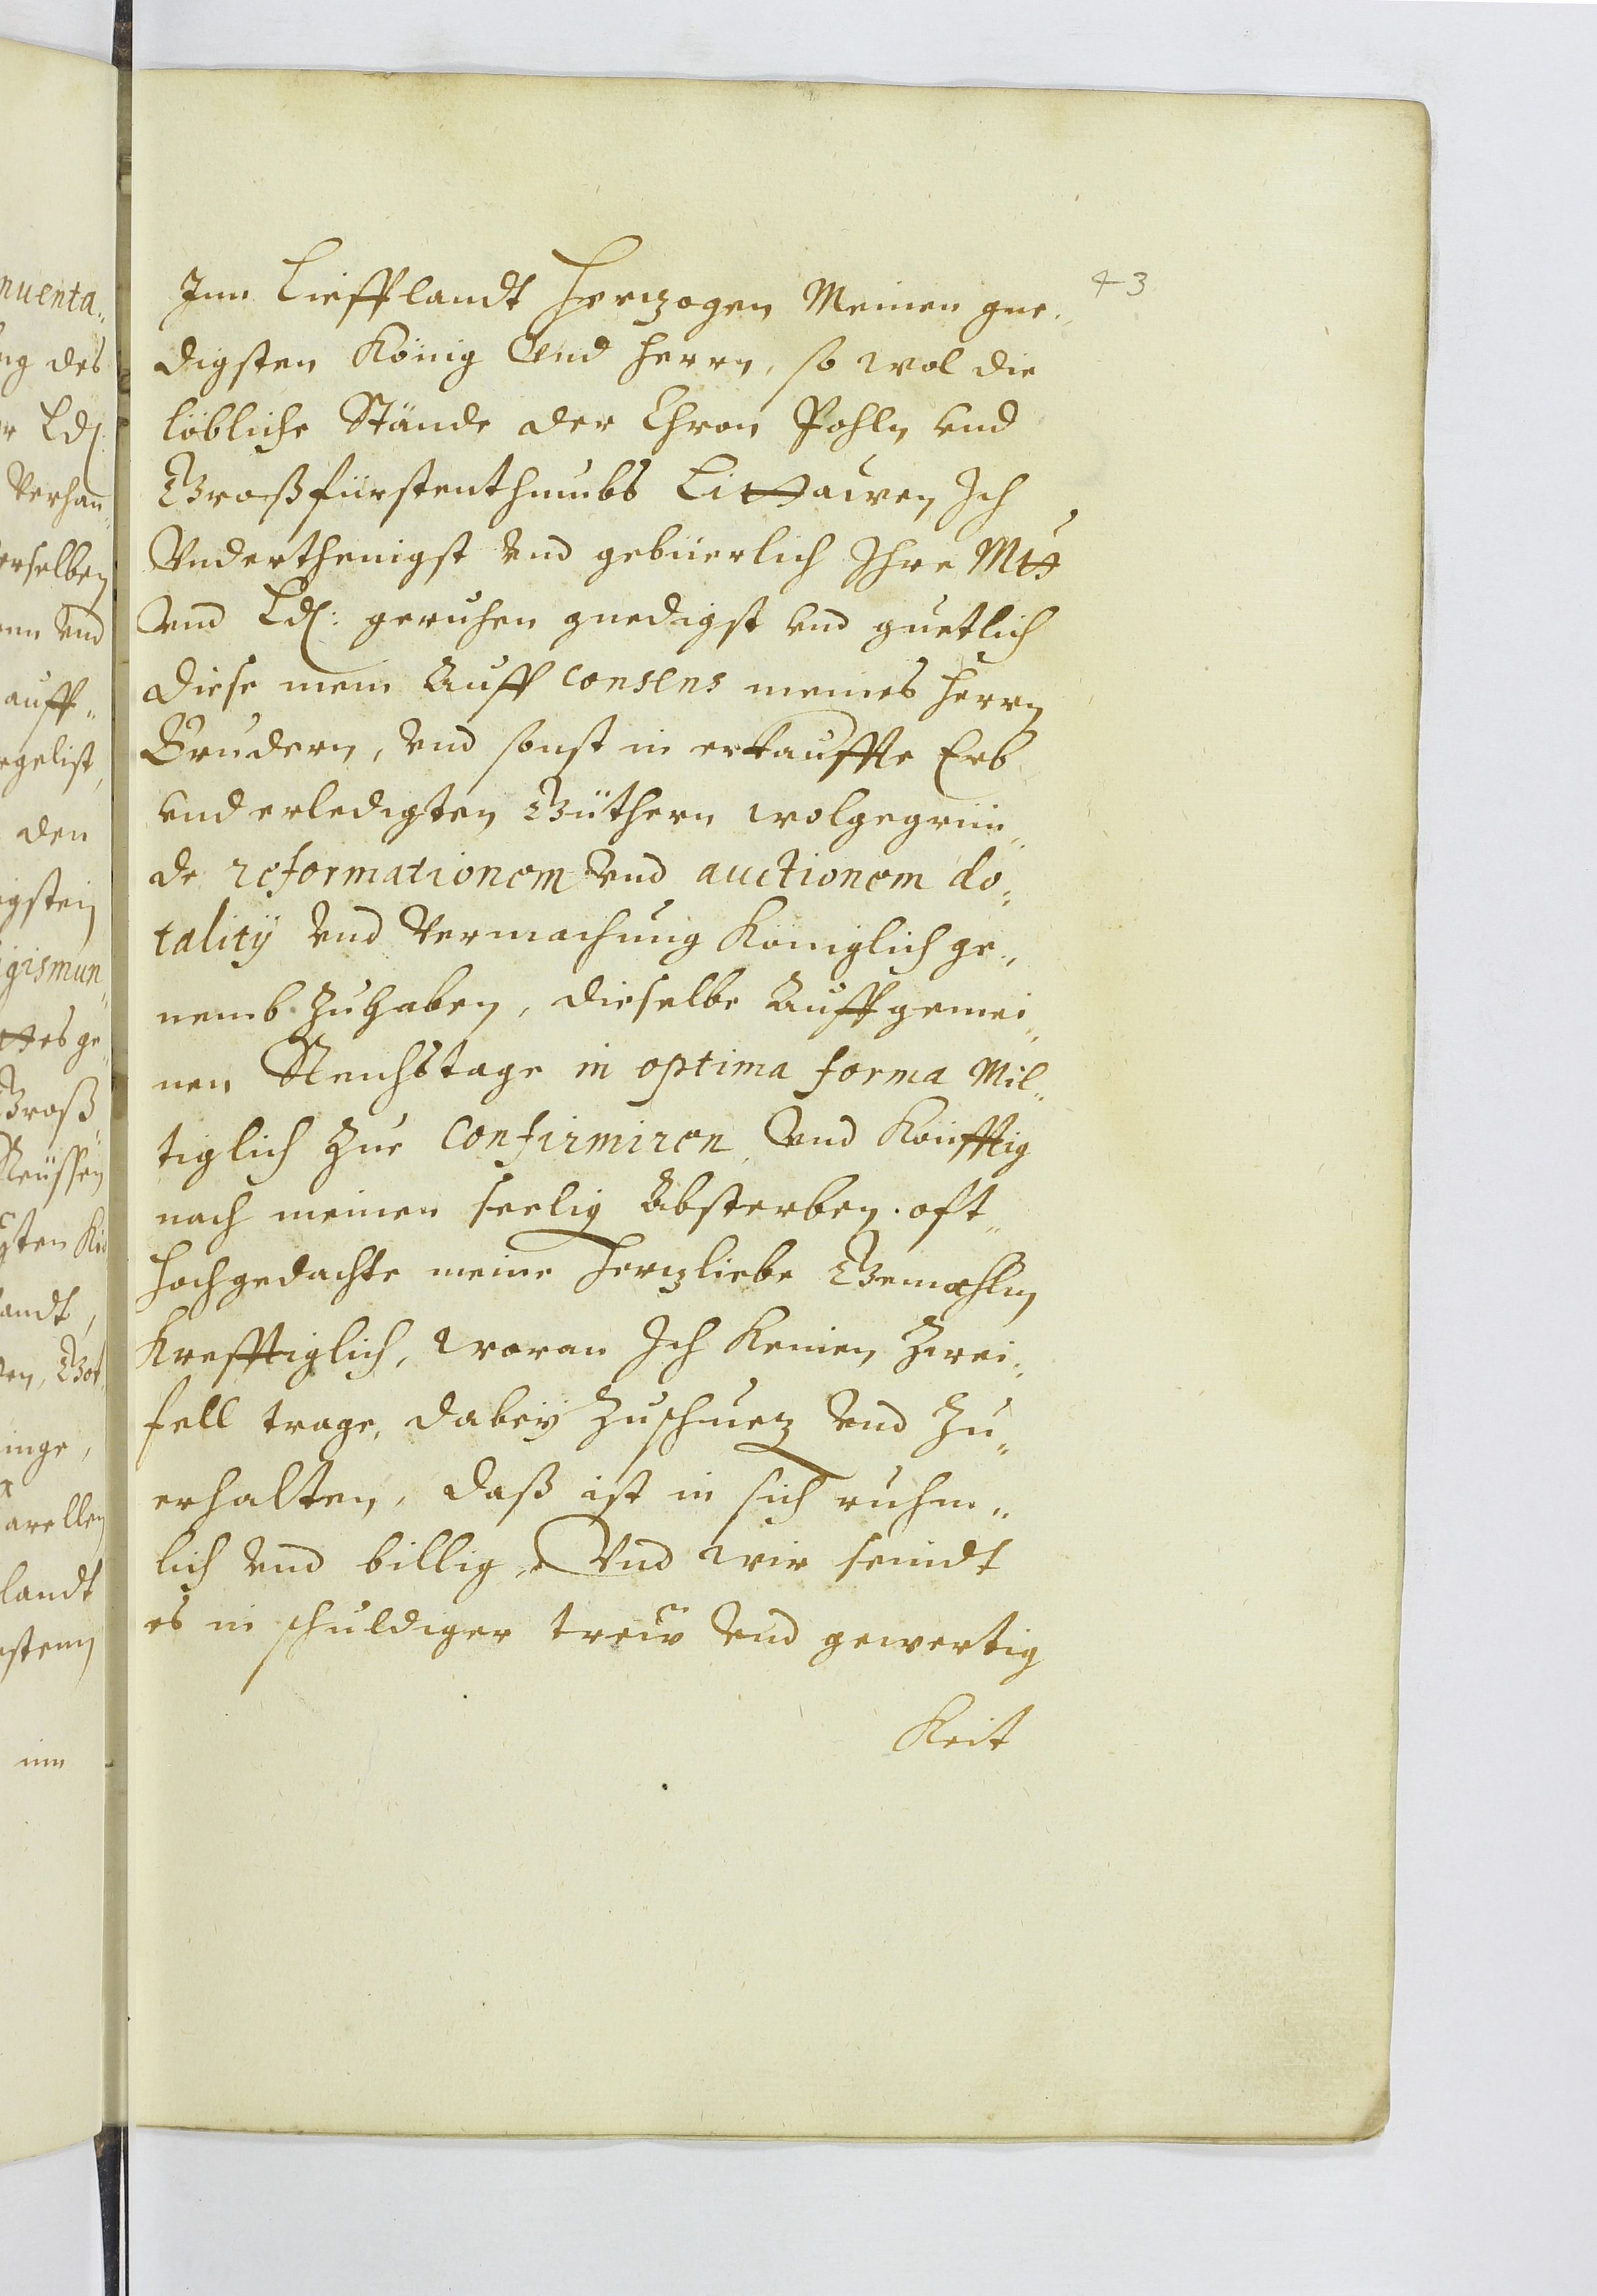 43
Inn Liefflandt Hertzogen Meinen gne„
digsten König Vnd Herrn, so wol die
löbliche Stände der Chron Pohln vnd
Großfürstenthumbs Littawen Ich
Vnderthenigst vnd gebüerlich Ihre Mtt
vnd Ld: geruhen gnedigst vnd guetlich
diese mein Auff consens meines Herrn
Brudern, vnd sonst in erkauffte Erb
vnd erledigten Güthern wolgegrün„
de reformationem vnd auctionem do„
talitij vnd Vermachung Königlich ge„
nemb Zuhaben, dieselbe Auff gemei„
nen Reichstage in optima forma Mil„
tiglich Zue Confirmiren, vnd Künfftig
nach meinen seelig Absterben. oft„
hochgedachte meine Hertzliebe Gemahlin
Krefftiglich, woran Ich Keinen Zwei„
fell trage, dabey Zuschuetz vnd Zu„
erhalten, daß ist in sich ruhm„
lich vnd billig, Vnd wir seindt
es in schuldiger treẅ vnd gewertig
Keit
nuenta„
ng des
r Ld:
Verhan„
erselben
nn vnd
auff„
rgelist,
den
igsten
igismun„
ttes ge„
Groß„
Reüssen
gsten Kö
landt,
en, Got„
inge,
arellen
landt
esten
inn